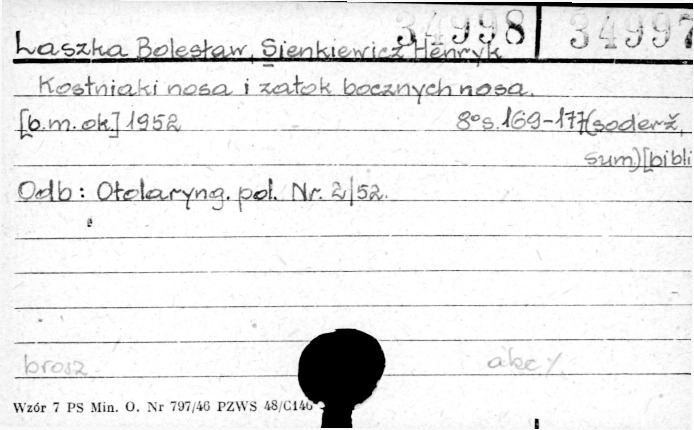 34998 34997
Laszka Bolesław, Sienkiewicz Henryk
Kostniaki nosa i zatok bocznych nosa.
[b.m.ok.] 1952 8° s. 169-177 (soderž,
sum) [bibli
Odb: Otolaryng. pol. Nr. 2/52.
brosz. akc.
Wzór 7 PS Min. O. Nr 797/46 PZWS 48/C146